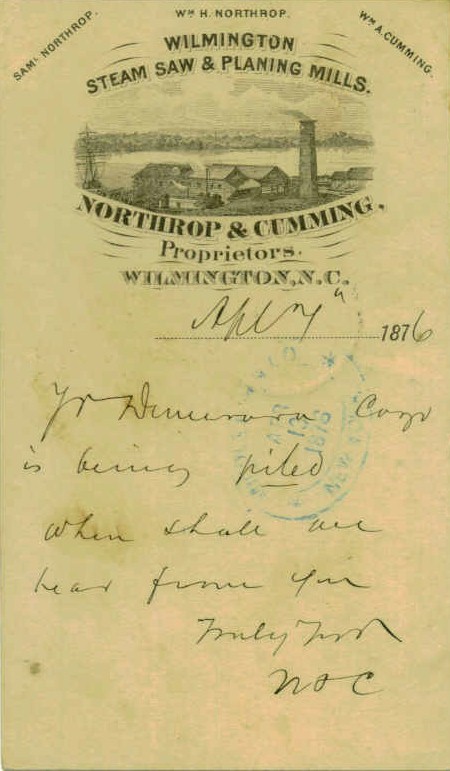 SAML. NORTHROP.
WM H. NORTHROP.
WM A. CUMMING.
WILMINGTON
STEAM SAW & PLANING MILLS.
NORTHROP & CUMMING,
Proprietors.
WILMINGTON, N.C.
Apl 7" 1876
Yr Demerara Cargo
is being piled
when shall we
hear from you
Truly Yrs
N & C